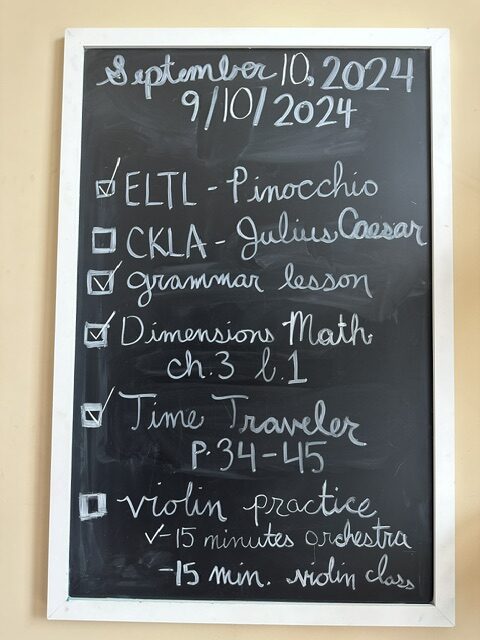 September 10, 2024
9/10/2024
☑ ELTL - Pinocchio
☐ CKLA - Julius Caesar
☑ grammar lesson
☑ Dimensions Math
ch.3 l.1
☑ Time Traveler
P.34-45
☐ violin practice
✓-15 minutes orchestra
-15 min. violin class